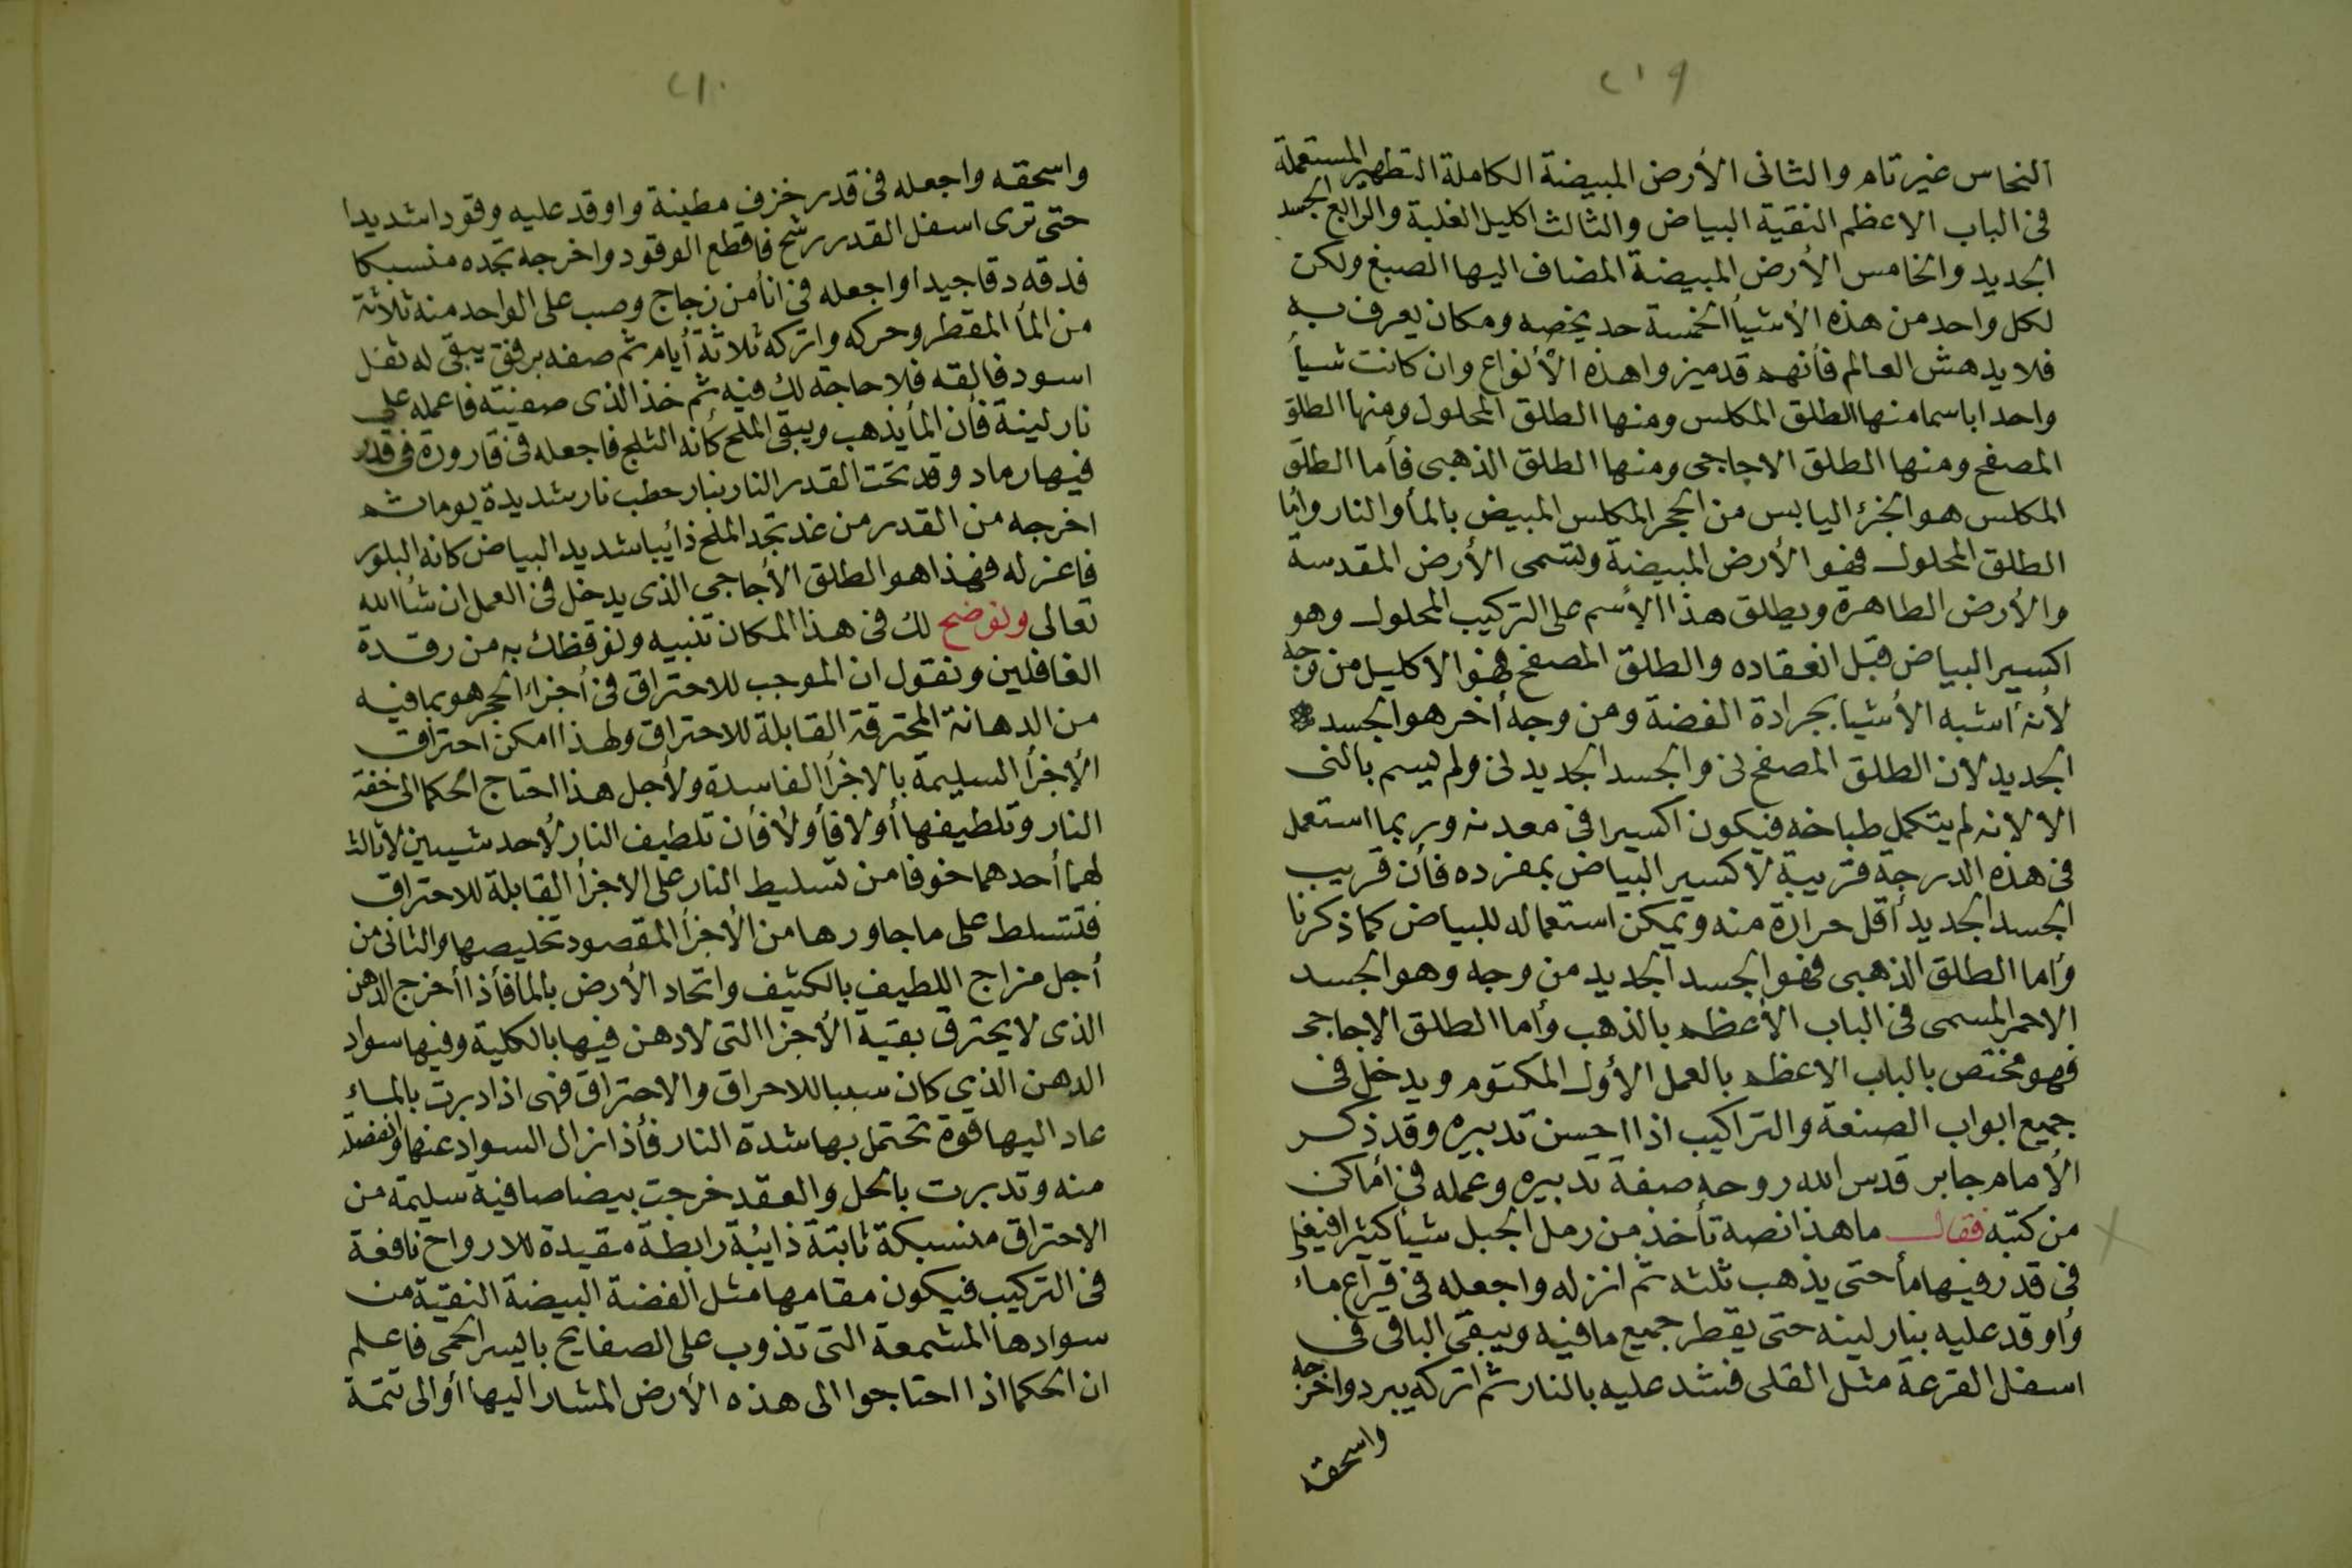 ٢١٩
النحاس غير تام والثانى الأرض المبيضة الكاملة التطهير المستعملة
فى الباب الاعظم النقية البياض والثالث اكليل الغلبة والرابع الجسد
الجديد والخامس الأرض المبيضة المضاف اليها الصبغ ولكن
لكل واحد من هذه الأشيأ الخمسة حد يخصه ومكان يعرف به
فلا يدهش العالم فأنهم قد ميزوا هذه الألأنواع وان كانت شيأ
واحدا باسما منها الطلق المكلس ومنها الطلق المحلول ومنها الطلق
المصفح ومنها الطلق الاجاجى ومنها الطلق الذهبى فأما الطلق
المكلس هو الجزء اليابس من الحجر المكلس المبيض بالمأ والنار وأما
الطلق المحلول فهو الأرض المبيضة وتسمى الأرض المقدسة
والأرض الطاهرة ويطلق هذا الأسم على التركيب المحلول وهو
اكسير البياض قبل انعقاده والطلق المصفح فهو الاكليل من وجه
لأنه أشبه الأشيا بجرادة الفضة ومن وجه أخر هو الجسد
الجديد لان الطلق المصفح نى والجسد الجديد نى ولم يسم بالنى
الا لانه لم يتكمل طباخه فيكون اكسيرا فى معدنه وربما استعمل
فى هذه الدرجة قريبة لاكسير البياض بمفرده فأن قريب
الجسد الجديد أقل حرارة منه ويمكن استعماله للبياض كما ذكرنا
وأما الطلق الذهبى فهو الجسد الجديد من وجه وهو الجسد
الاحمر المسمى فى الباب الأعظم بالذهب وأما الطلق الاجاجى
فهو مختص بالباب الاعظم بالعمل الأول المكتوم ويدخل فى
جميع ابواب الصنعة والتراكيب اذا احسن تدبيره وقد ذكر
الأمام جابر قدس الله روحه صفة تدبيره وعمله فى أماكن
من كتبه فقال ما هذا نصه تأخذ من رمل الجبل شيأ كثيرا فيغلى
فى قدر فيها مأ حتى يذهب ثلثه ثم انزله واجعله فى قراع ماء
وأوقد عليه بنار لينه حتى يقطر جميع ما فيه ويبقى الباقى فى
اسفل القرعة مثل القلى فشد عليه بالنار ثم اتركه يبرد واخرجه
واسحقه
٢١٠
واسحقه واجعله فى قدر خزف مطينة واوقد عليه وقودا شديدا
حتى ترى اسفل القدر رشح فاقطع الوقود واخرجه تجده منسبكا
فدقه دقا جيدا واجعله فى انأ من زجاج وصب على الواحد منه ثلاثة
من المأ المقطر وحركه واتركه ثلاثة أيام ثم صفه برفق يبقى له ثفل
اسود فالقه فلا حاجة لك فيه ثم خذ الذى صفيته فاعمله على
نار لينة فأن المأ يذهب ويبقى الملح كأنه الثلج فاجعله فى قارورة فى قدر
فيها رماد وقد تحت القدر النار بنار حطب نار شديدة يوما ثم
اخرجه من القدر من غد تجد الملح ذأيبا شديد البياض كانه البلور
فاعزله فهذا هو الطلق الأجاجى الذى يدخل فى العمل ان شأ الله
تعالى ونوضح لك فى هذا المكان تنبيه ونوقظك به من رقدة
الغافلين ونقول ان الموجب للاحتراق فى أجزاء الحجر هو بما فيه
من الدهانة المحترقة القابلة للاحتراق ولهذا امكن احتراق
الأجزأ السليمة بالاجزأ الفاسدة ولأجل هذا احتاج الحكما الى خفة
النار وتلطيفها أولا فأولا فأن تلطيف النار لأحد شيىين لا ثالث
لهما أحدهما خوفا من تسليط النار على الاجزأ القابلة للاحتراق
فتتسلط على ما جاورها من الأجزأ المقصود تخليصها والثانى من
أجل مزاج اللطيف بالكثيف واتحاد الأرض بالمأ فأذا أخرج الدهن
الذى لا يحترق بقية الأجزا التى لا دهن فيها بالكلية وفيها سواد
الدهن الذي كان سببا للاحراق والاحتراق فهى اذا دبرت بالماء
عاد اليها قوة تحتمل بها شدة النار فأذا نزال السواد عنها وانفصلت
منه وتدبرت بالحل والعقد خرجت بيضا صافية سليمة من
الاحتراق منسبكة ثابتة ذائبة رابطة مقيدة للارواح نافعة
فى التركيب فيكون مقامها مثل الفضة البيضة النقية من
سوادها المشمعة التى تذوب على الصفايح باليسر الحمى فاعلم
ان الحكما اذا احتاجوا الى هذه الأرض المشار اليها أو الى تتمة